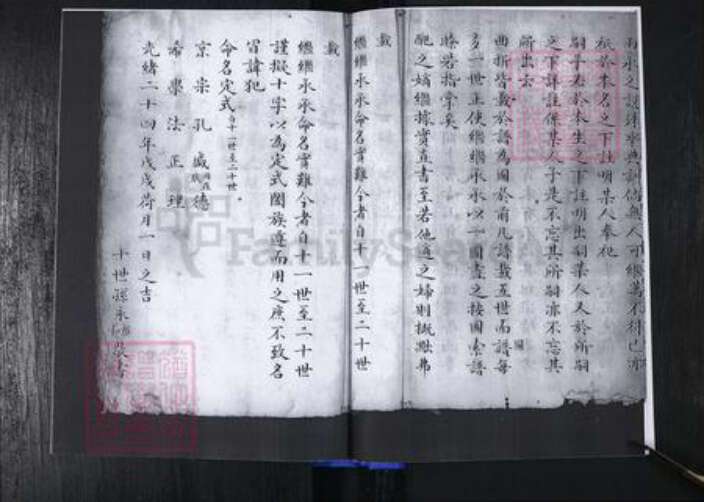 祇於本名之下註明某人奉祀
嗣子者於本生之下註明出嗣某人又於所嗣
之下詳註係某人子是不忘其所嗣亦不忘其
所出云
曲折皆載於譜為圖於前凡譜載五世而譜每
多一世正使繼繼承承以一圖書之按圖索譜
瞭若指掌矣
配之嫡繼據實直書至若他適之婦則概黜弗
載
繼繼承承命名實難今者自十一世至二十世
載
繼繼承承命名實難今者自十一世至二十世
謹擬十字以為定式闔族遵而用之庶不致名
冒諱犯
命名定式自十一世至二十世
京宗孔盛德
希學法正理
光緒二十四年戊戌荷月一日之吉
十世孫永
FamilySearch